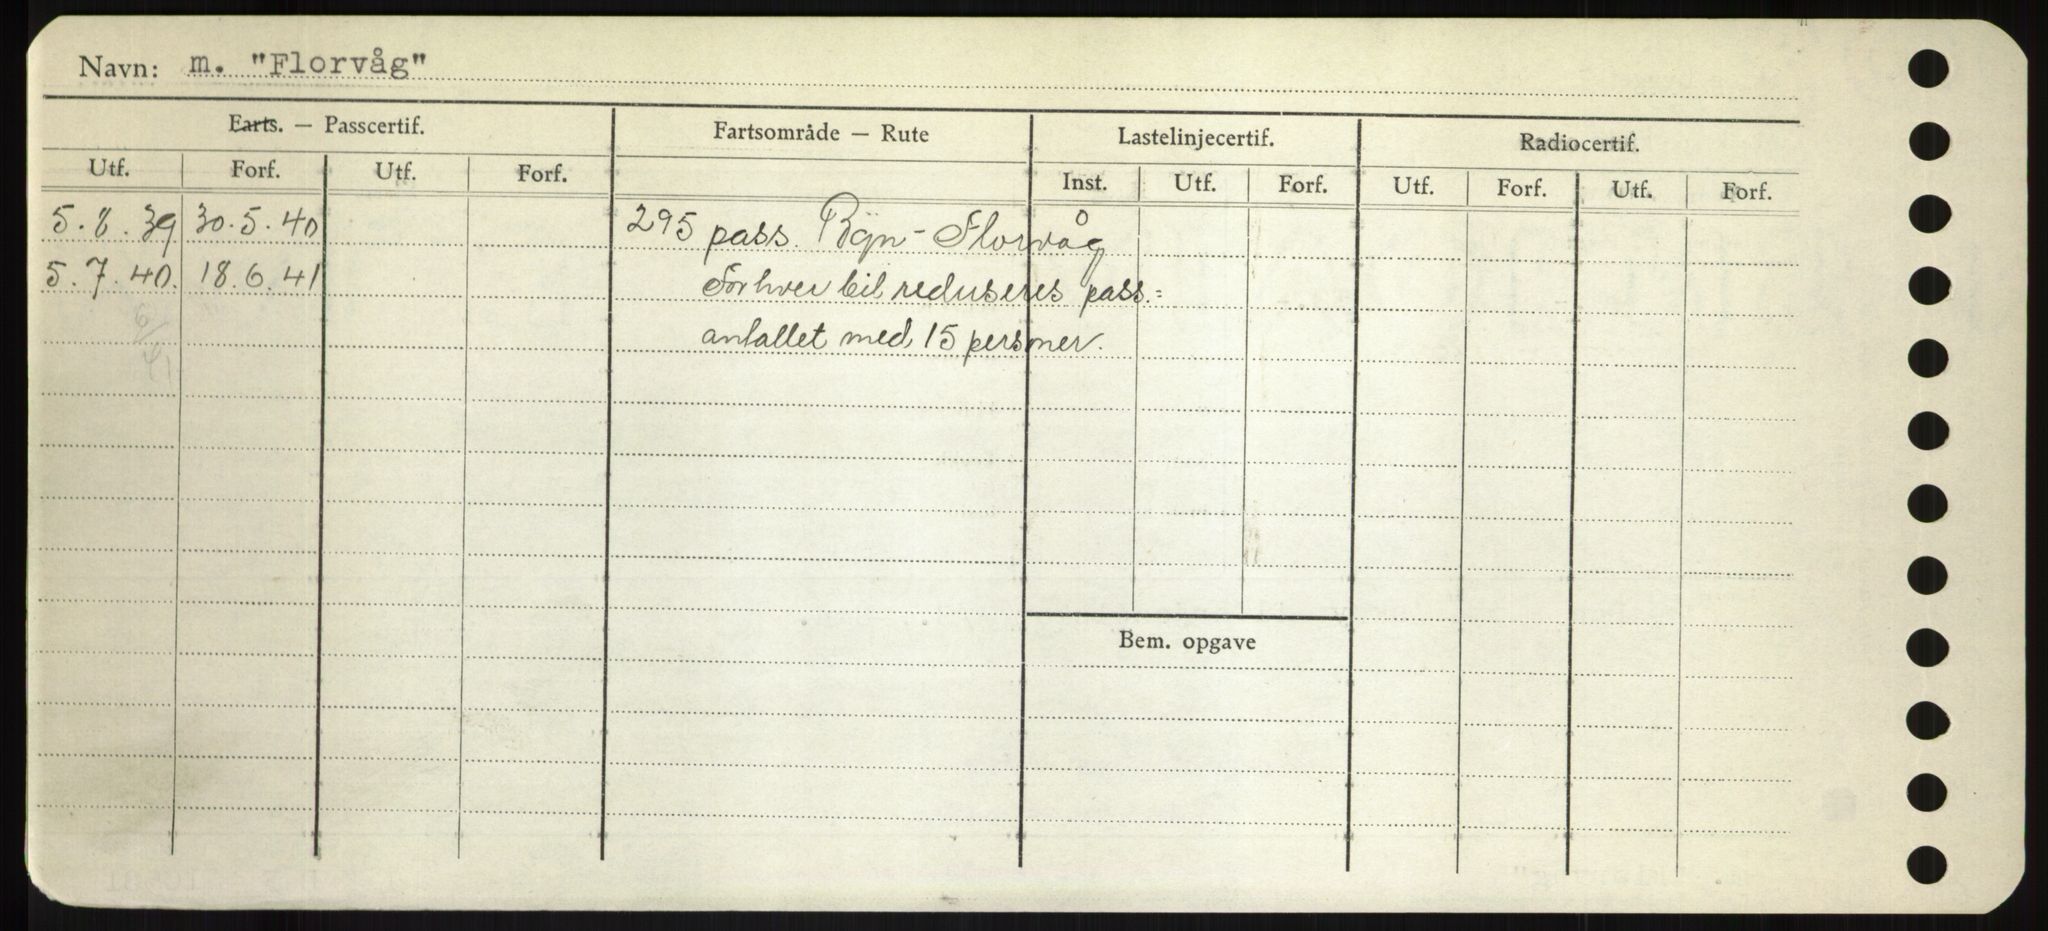 Navn: m. "Florvåg"
Farts. — Passcertif. Fartsområde — Rute Lastelinjecertif. Radiocertif.
Utf. Forf. Utf. Forf. Inst. Utf. Forf. Utf. Forf. Utf. Forf.
5.8.39 30.5.40 295 pass. Bgn - Florvåg
5.7.40. 18.6.41 For hver bil reduseres pass.=
6/41 antallet med 15 personer.
Bem. opgave